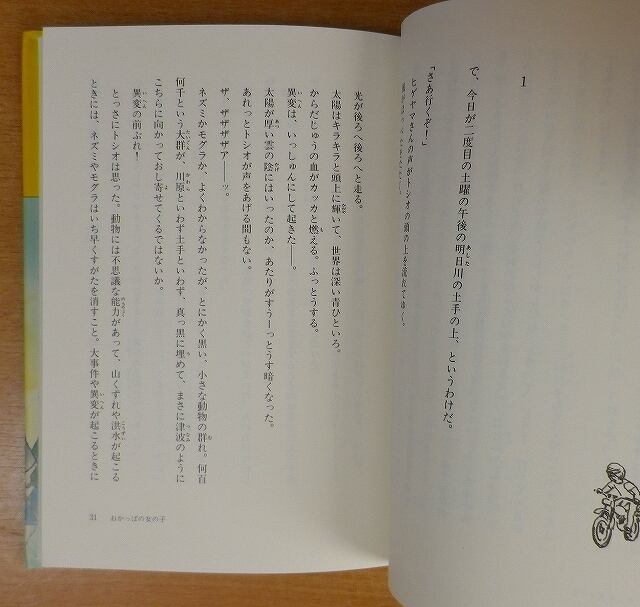 1
で、今日が二度目の土曜の午後の明日川の土手の上、というわけだ。
「さあ行くぞ!」
ヒゲヤマさんの声がトシオの頭の上を流れてゆく。
光が後ろへ後ろへと走る。
太陽はキラキラと頭上に輝いて、世界は深い青ひといろ。
からだじゅうの血がカッカと燃える。ふっとうする。
異変は、いっしゅんにして起きた――。
太陽が厚い雲の陰にはいったのか、あたりがすうーっとうす暗くなった。
あれっとトシオが声をあげる間もない。
ザ、ザザザザアーーッ。
ネズミかモグラか、よくわからなかったが、とにかく黒い、小さな動物の群れ。何百
何千という大群が、川原といわず土手といわず、真っ黒に埋めて、まさに津波のように
こちらに向かっておし寄せてくるではないか。
異変の前ぶれ!
とっさにトシオは思った。動物には不思議な能力があって、山くずれや洪水が起こる
ときには、ネズミやモグラはいち早くすがたを消すこと。大事件や異変が起こるときに
31 おかっぱの女の子